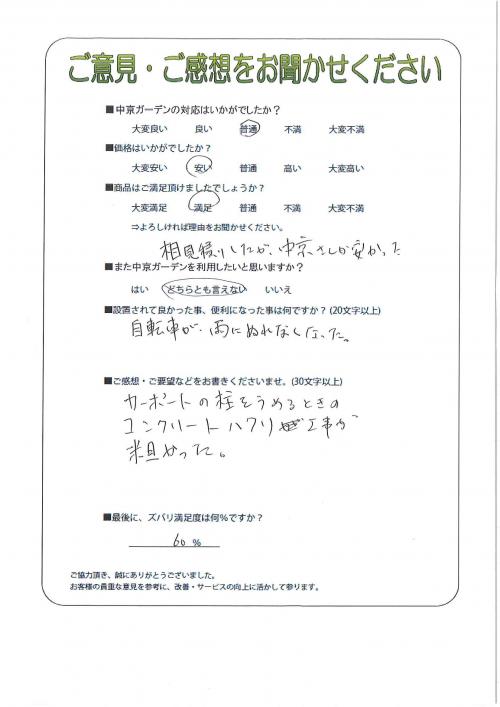 ご意見・ご感想をお聞かせください
■中京ガーデンの対応はいかがでしたか？
大変良い 良い 普通 不満 大変不満
■価格はいかがでしたか？
大変安い 安い 普通 高い 大変高い
■商品はご満足頂けましたでしょうか？
大変満足 満足 普通 不満 大変不満
⇒よろしければ理由をお聞かせください。
相見積りしたが、中京さんが安かった
■また中京ガーデンを利用したいと思いますか？
はい どちらとも言えない いいえ
■設置されて良かった事、便利になった事は何ですか？(20文字以上)
自転車が、雨にぬれなくなった。
■ご感想・ご要望などをお書きくださいませ。(30文字以上)
カーポートの柱をうめるときの
コンクリートハツリ工事が
粗かった。
■最後に、ズバリ満足度は何％ですか？
60 %
ご協力頂き、誠にありがとうございました。
お客様の貴重な意見を参考に、改善・サービスの向上に活かして参ります。